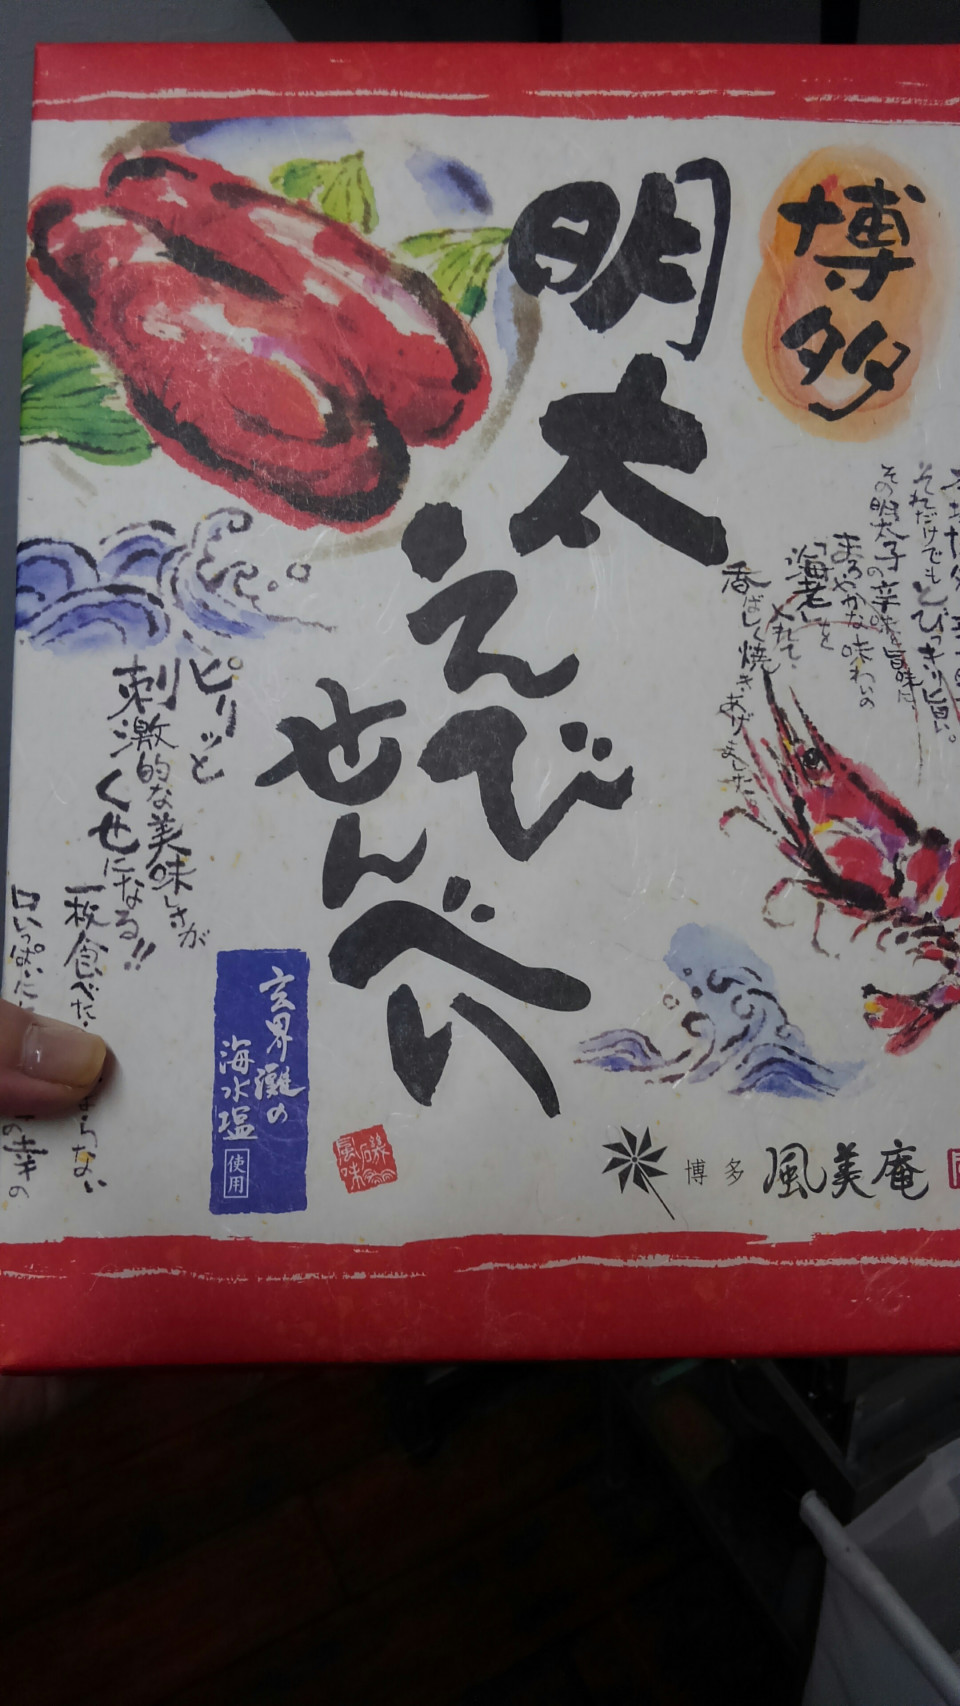 博多
明太
えび
せんべい
それだけでもとびっきり旨い。
その明太子の辛味と旨味は、
まろやかな味わいの
「海老」と
入れて、
香ばしく焼きあげました。
ピリッと
刺激的な美味しさが
くせになる!!
一枚食べた
まらない
口いっぱいに
の幸の
玄界灘の
海水塩
使用
磯
風味
博多 風美庵